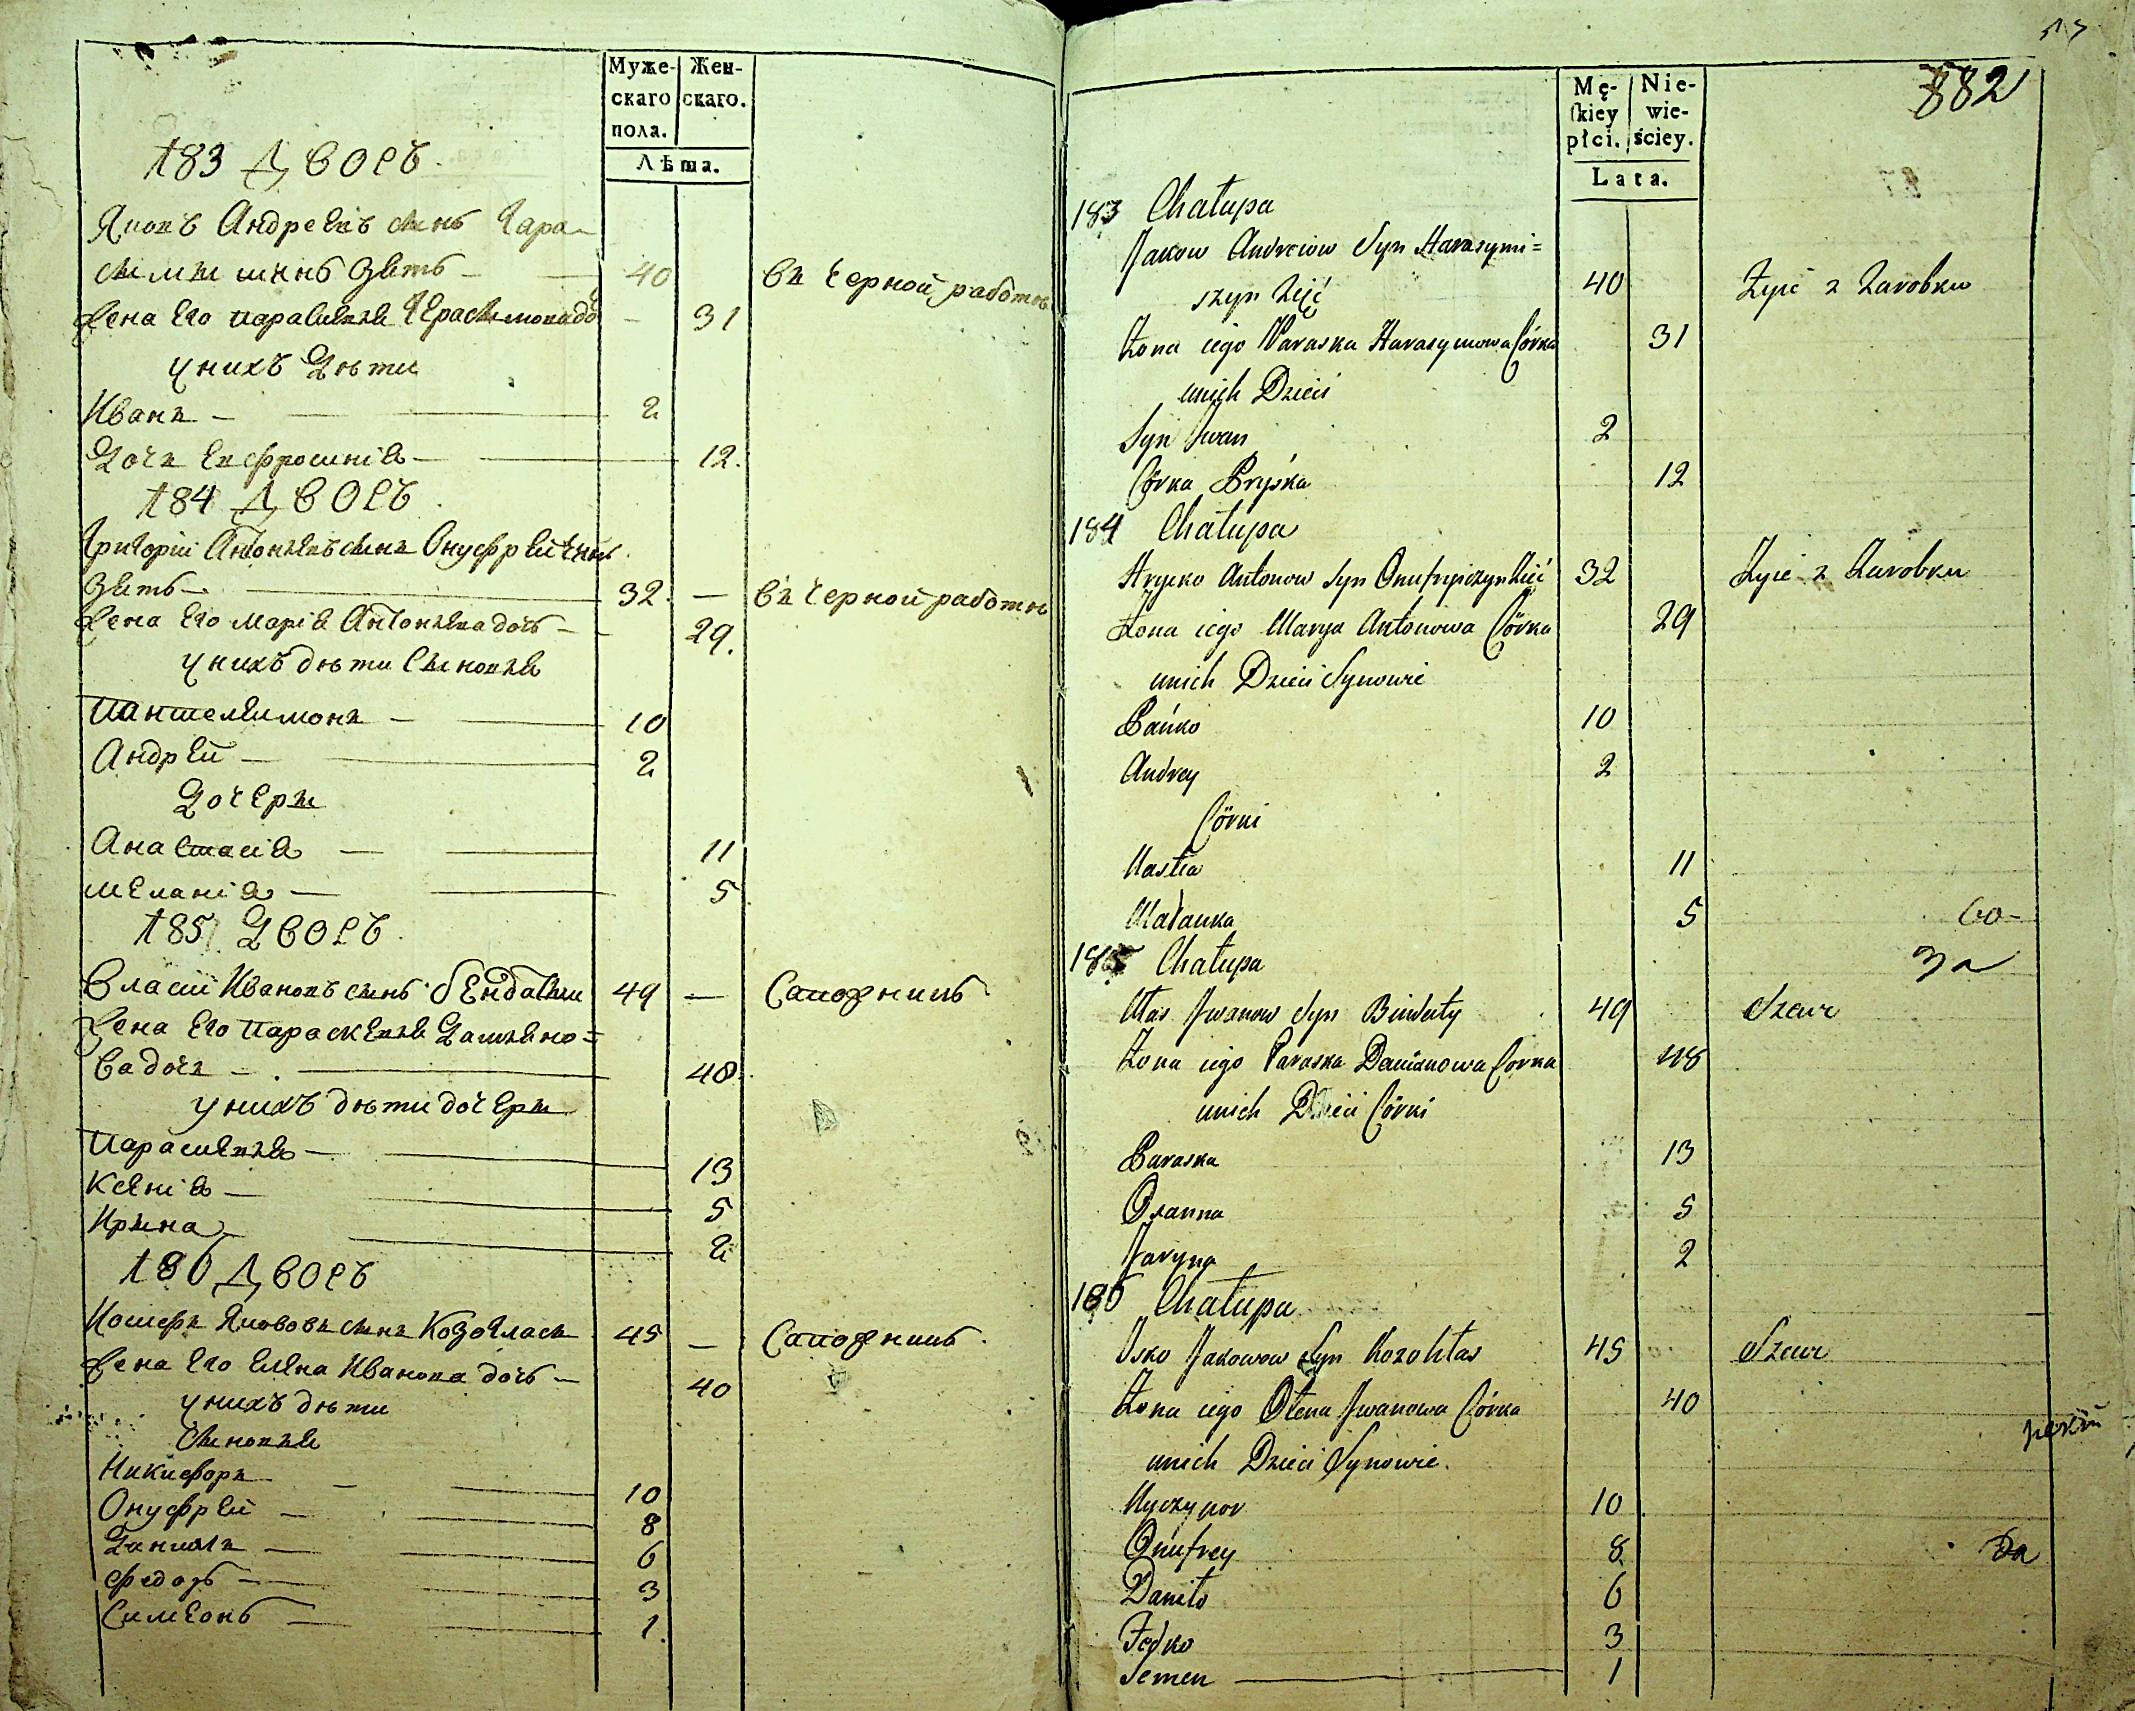 Муже-
скаго
пола.
Жен-
скаго.
Лѣта.
183 Дворъ.
Яковъ Андреевъ сынъ Гара-
сымышинъ зять — 40 въ черной работѣ
Жена его Параскевія Герасимова до — 31
у нихъ Дѣти
Иванъ — 2
Дочь Евфросинія — 12.
184 Дворъ.
Григорій Антоневъ сынъ Онуфрейчинъ
зять — 32. — въ черной работѣ
Жена его Марія Антонева дочь — 29.
у нихъ дѣти сыновья
Пантелеимонъ — 10
Андрей — 2
Дочеры
Анастасія — 11
Меланія — 5
185 Дворъ.
Власій Ивановъ сынъ Бендатый 49 — Сапожникъ.
Жена его Параскевія Дамьяно=
ва дочь — 48.
у нихъ дѣти дочеры
Параскевія — 13
Ксенія — 5
Ирина — 2
186 Дворъ
Иосифъ Якововъ сынъ Козогласъ 45 — Сапожникъ.
Жена его Елена Иванова дочь — 40
у нихъ дѣти
Сыновья
Никифоръ — 10
Онуфрей — 8
Данило — 6
Федоръ — 3
Симеонъ — 1.
882
Mę-
ſkiey
płci.
Nie-
wie-
ściey.
Lata.
183 Chałupa
Jakow Andreiow Syn Harasymi=
szyn Zięć 40 Żyie z Zarobku
Żona iego Paraska Harasymowa Córka 31
unich Dzieci
Syn Iwan 2
Córka Pryśka 12
184 Chałupa
Hrycko Antonow Syn Onufryiczyn Zięć 32 Żyie z Zarobku
Żona iego Marya Antonowa Córka 29
unich Dzieci Synowie
Pańko 10
Andrey 2
Córki
Nastia 11
Małanka 5
185 Chałupa
за
Własz Iwanow Syn Bindaty 49 Szewc
Żona iego Paraska Demianowa Córka 48
unich Dzieci Córki
Paraska 13
Oxanna 5
Jaryna 2
186 Chałupa
Josko Jakowow Syn Kozohłas 45 Szewc
Żona iego Ołena Iwanowa Córka 40
unich Dzieci Synowie.
Nyczypor 10
Onufrey 8
Daniło 6
Fedko 3
Semen — 1